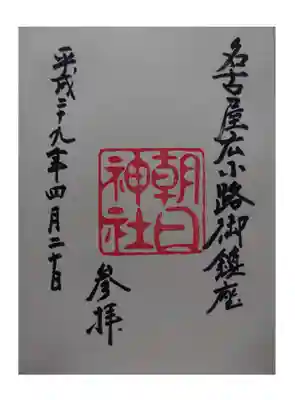 名古屋広小路御鎮座
朝日
神社
参拝
平成二十九年四月二十日